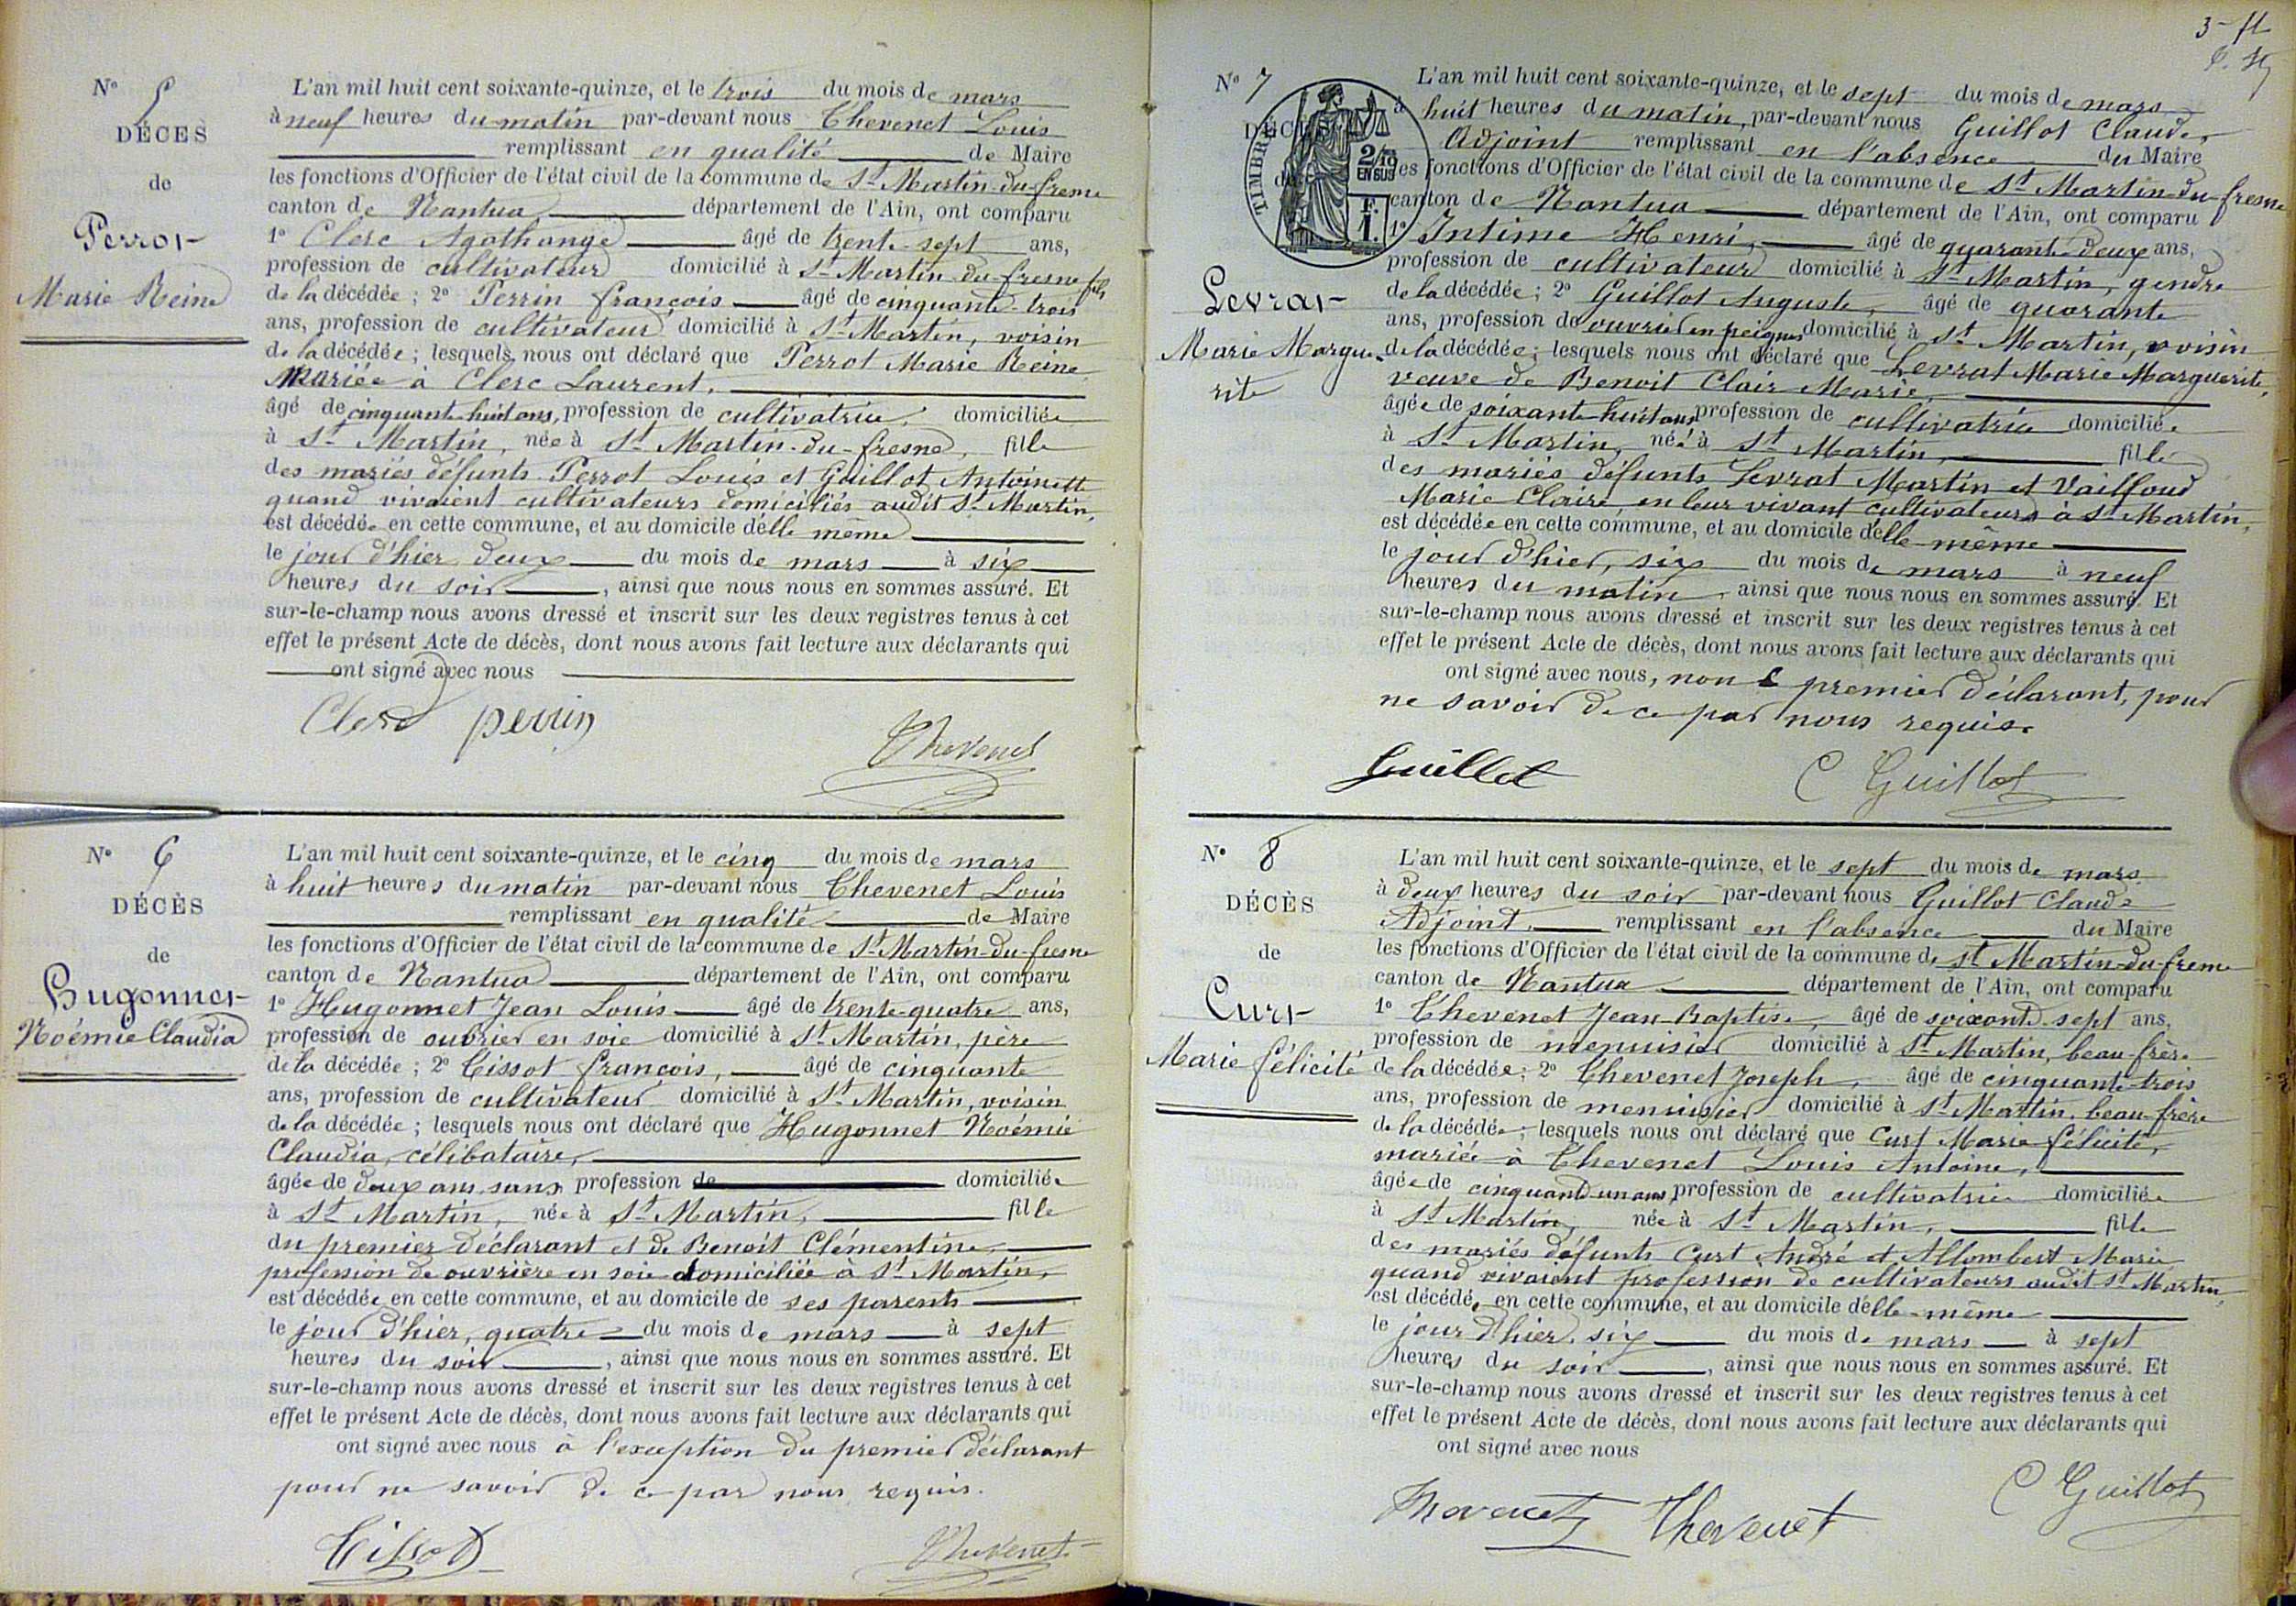 N° 5
DÉCÈS
de
Perrot
Marie Reine
L'an mil huit cent soixante-quinze, et le trois du mois de mars
à neuf heures du matin par-devant nous Thevenet Louis
remplissant en qualité de Maire
les fonctions d'Officier de l'état civil de la commune de St Martin-du-fresne
canton de Nantua département de l'Ain, ont comparu
1° Clerc Agathange âgé de trente-sept ans,
profession de cultivateur domicilié à St Martin-du-fresne, fils
de la décédée ; 2° Perrin françois âgé de cinquante-trois
ans, profession de cultivateur domicilié à St Martin, voisin
de la décédée ; lesquels nous ont déclaré que Perrot Marie Reine
Mariée à Clerc Laurent,
âgé de cinquante-huit ans, profession de cultivatrice, domiciliée
à St Martin, née à St Martin-du-fresne, fille
des mariés défunts Perrot Louis et Guillot Antoinette
quand vivaient cultivateurs domiciliés audit St Martin,
est décédée en cette commune, et au domicile d'elle même
le jour d'hier deux du mois de mars à six
heures du soir, ainsi que nous nous en sommes assuré. Et
sur-le-champ nous avons dressé et inscrit sur les deux registres tenus à cet
effet le présent Acte de décès, dont nous avons fait lecture aux déclarants qui
ont signé avec nous
Clerc perrin
Thevenet
N° 6
DÉCÈS
de
Hugonnet
Noémie Claudia
L'an mil huit cent soixante-quinze, et le cinq du mois de mars
à huit heures du matin par-devant nous Thevenet Louis
remplissant en qualité de Maire
les fonctions d'Officier de l'état civil de la commune de St Martin-du-fresne
canton de Nantua département de l'Ain, ont comparu
1° Hugonnet Jean Louis âgé de trente-quatre ans,
profession de ouvrier en soie domicilié à St Martin, père
de la décédée ; 2° Tissot françois, âgé de cinquante
ans, profession de cultivateur domicilié à St Martin, voisin
de la décédée ; lesquels nous ont déclaré que Hugonnet Noémie
Claudia, célibataire,
âgée de deux ans, sans profession de domiciliée
à St Martin, née à St Martin, fille
du premier déclarant et de Benoit Clémentine,
profession de ouvrière en soie domiciliée à St Martin,
est décédée en cette commune, et au domicile de ses parents
le jour d'hier, quatre du mois de mars à sept
heures du soir, ainsi que nous nous en sommes assuré. Et
sur-le-champ nous avons dressé et inscrit sur les deux registres tenus à cet
effet le présent Acte de décès, dont nous avons fait lecture aux déclarants qui
ont signé avec nous à l'exception du premier déclarant
pour ne savoir de ce par nous requis.
Tissot
Thevenet
N° 7
DÉCÈS
de
TIMBRE
2/10
EN SUS
F.
1.
Levrat
Marie Margue-
rite
L'an mil huit cent soixante-quinze, et le sept du mois de mars
à huit heures du matin, par-devant nous Guillot Claude,
Adjoint remplissant en l'absence du Maire
les fonctions d'Officier de l'état civil de la commune de St Martin-du-fresne
canton de Nantua département de l'Ain, ont comparu
1° Intime Henri, âgé de quarante-deux ans,
profession de cultivateur domicilié à St Martin, gendre
de la décédée ; 2° Guillot Auguste, âgé de quarante
ans, profession de ouvrier en peignes domicilié à St Martin, voisin
de la décédée ; lesquels nous ont déclaré que Levrat Marie Marguerite,
veuve de Benoit Clair Marie,
âgée de soixante-huit ans, profession de cultivatrice domiciliée
à St Martin, née à St Martin, fille
des mariés défunts Levrat Martin et Vailloud
Marie Claire, en leur vivant cultivateurs à St Martin,
est décédée en cette commune, et au domicile d'elle-même
le jour d'hier, six du mois de mars à neuf
heures du matin, ainsi que nous nous en sommes assuré. Et
sur-le-champ nous avons dressé et inscrit sur les deux registres tenus à cet
effet le présent Acte de décès, dont nous avons fait lecture aux déclarants qui
ont signé avec nous, non le premier déclarant, pour
ne savoir de ce par nous requis.
Guillot
C Guillot
N° 8
DÉCÈS
de
Curt
Marie félicité
L'an mil huit cent soixante-quinze, et le sept du mois de mars
à deux heures du soir par-devant nous Guillot Claude
Adjoint, remplissant en l'absence du Maire
les fonctions d'Officier de l'état civil de la commune de St Martin-du-fresne
canton de Nantua département de l'Ain, ont comparu
1° Thevenet Jean-Baptiste, âgé de soixante-sept ans,
profession de menuisier domicilié à St Martin, beau-frère
de la décédée ; 2° Thevenet Joseph, âgé de cinquante-trois
ans, profession de menuisier domicilié à St Martin, beau-frère
de la décédée ; lesquels nous ont déclaré que Curt Marie félicité,
mariée à Thevenet Louis Antoine,
âgée de cinquante-un ans, profession de cultivatrice domiciliée
à St Martin, née à St Martin, fille
des mariés défunts Curt André et Allombert Marie
quand vivaient profession de cultivateurs audit St Martin,
est décédée en cette commune, et au domicile d'elle-même
le jour d'hier, six du mois de mars à sept
heures du soir, ainsi que nous nous en sommes assuré. Et
sur-le-champ nous avons dressé et inscrit sur les deux registres tenus à cet
effet le présent Acte de décès, dont nous avons fait lecture aux déclarants qui
ont signé avec nous
Thevenet Thevenet
C Guillot